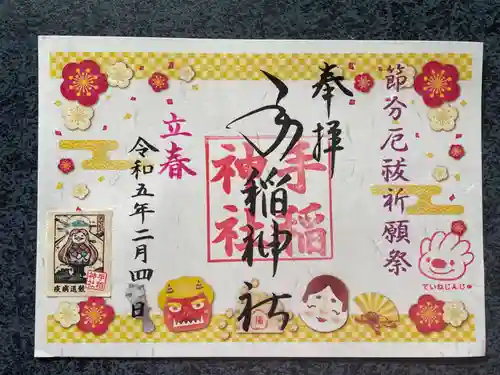 節分厄祓祈願祭
奉拝
手稲神社
手稲
神社
立春
令和五年二月四日
ていねじんじゃ
疾病退散
手稲
神社